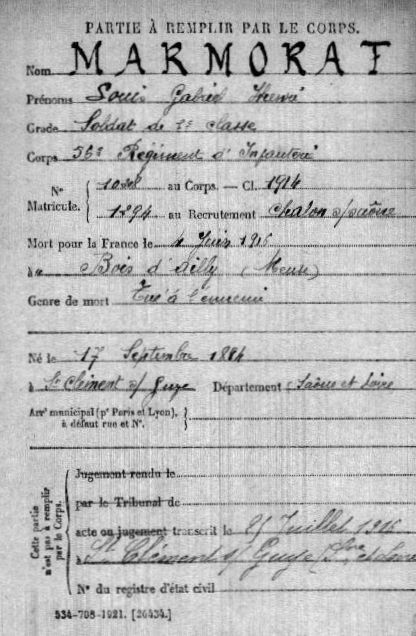 PARTIE À REMPLIR PAR LE CORPS.
Nom MARMORAT
Prénoms Louis Gabriel Hervé
Grade Soldat de 2e classe
Corps 56e Régiment d'Infanterie
N° Matricule. { au Corps. — Cl. 1914
1294 au Recrutement Chalon s/saône
Mort pour la France le 4 Juin 1915
à Bois d'Ailly (Meuse)
Genre de mort Tué à l'ennemi
Né le 17 Septembre
à St Clément s/ Guye Département Saône et Loire
Arrt municipal (pr Paris et Lyon), à défaut rue et N°. }
Cette partie n'est pas à remplir par le Corps.
Jugement rendu le
par le Tribunal de
acte ou jugement transcrit le Juillet 1915
à St Clément s/ Guye (Sne et Loire
N° du registre d'état civil
534-708-1921. [26434.]